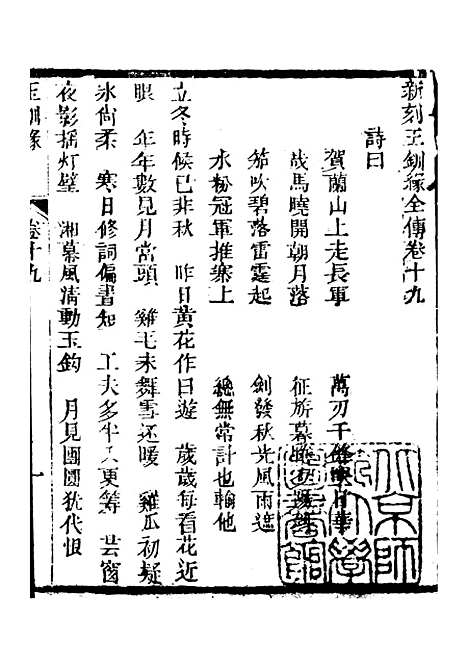 新刻玉釧緣全傳卷十九
詩曰
賀蘭山上走長軍 萬刃千 日華
哉馬曉開朝月落 征旂暮
笳吹碧落雷霆起 劍發秋光風雨遮
水粉冠軍推塞上 總無常計也輸他
立冬時候已非秋 昨日黃花作日遊 歲歲每看花近
眼 年年數見月當頭 雞毛未舞雪还暖 雞瓜初凝
氷尚柔 寒日修詞偏晝短 工夫多半入更籌 芸窗
夜影摇灯壁 湘幕風清動玉鈎 月見團圓犹代恨
玉釧緣 卷十九 一
京師大學